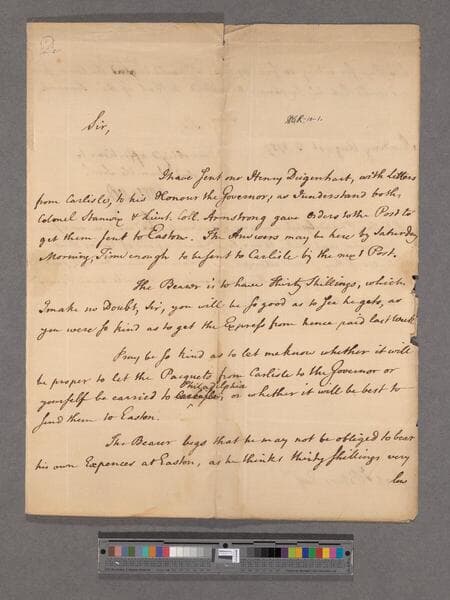 2.
HGR-10-1.
Sir,
I have sent one Henry Diegenhart, with Letters
from Carlisle, to his Honour the Governor, as I understand both
Colonel Stanwix & Lieut. Coll. Armstrong gave Orders to the Post to
get them sent to Easton. The Answers may be here by Saturday
Morning, Time enough to be sent to Carlisle by the next Post.
The Bearer is to have thirty Shillings, which
I make no Doubt, Sir, you will be so good as to see he gets, as
you were so kind as to get the Express from hence paid last Week.
Pray be so kind as to let me know whether it will
be proper to let the Pacquets from Carlisle to the Governor or
Philadelphia
yourself be carried to Carlisle, or whether it will be best to
send them to Easton.
The Bearer begs that he may not be obliged to bear
his own Expences at Easton, as he thinks thirty shillings very
low